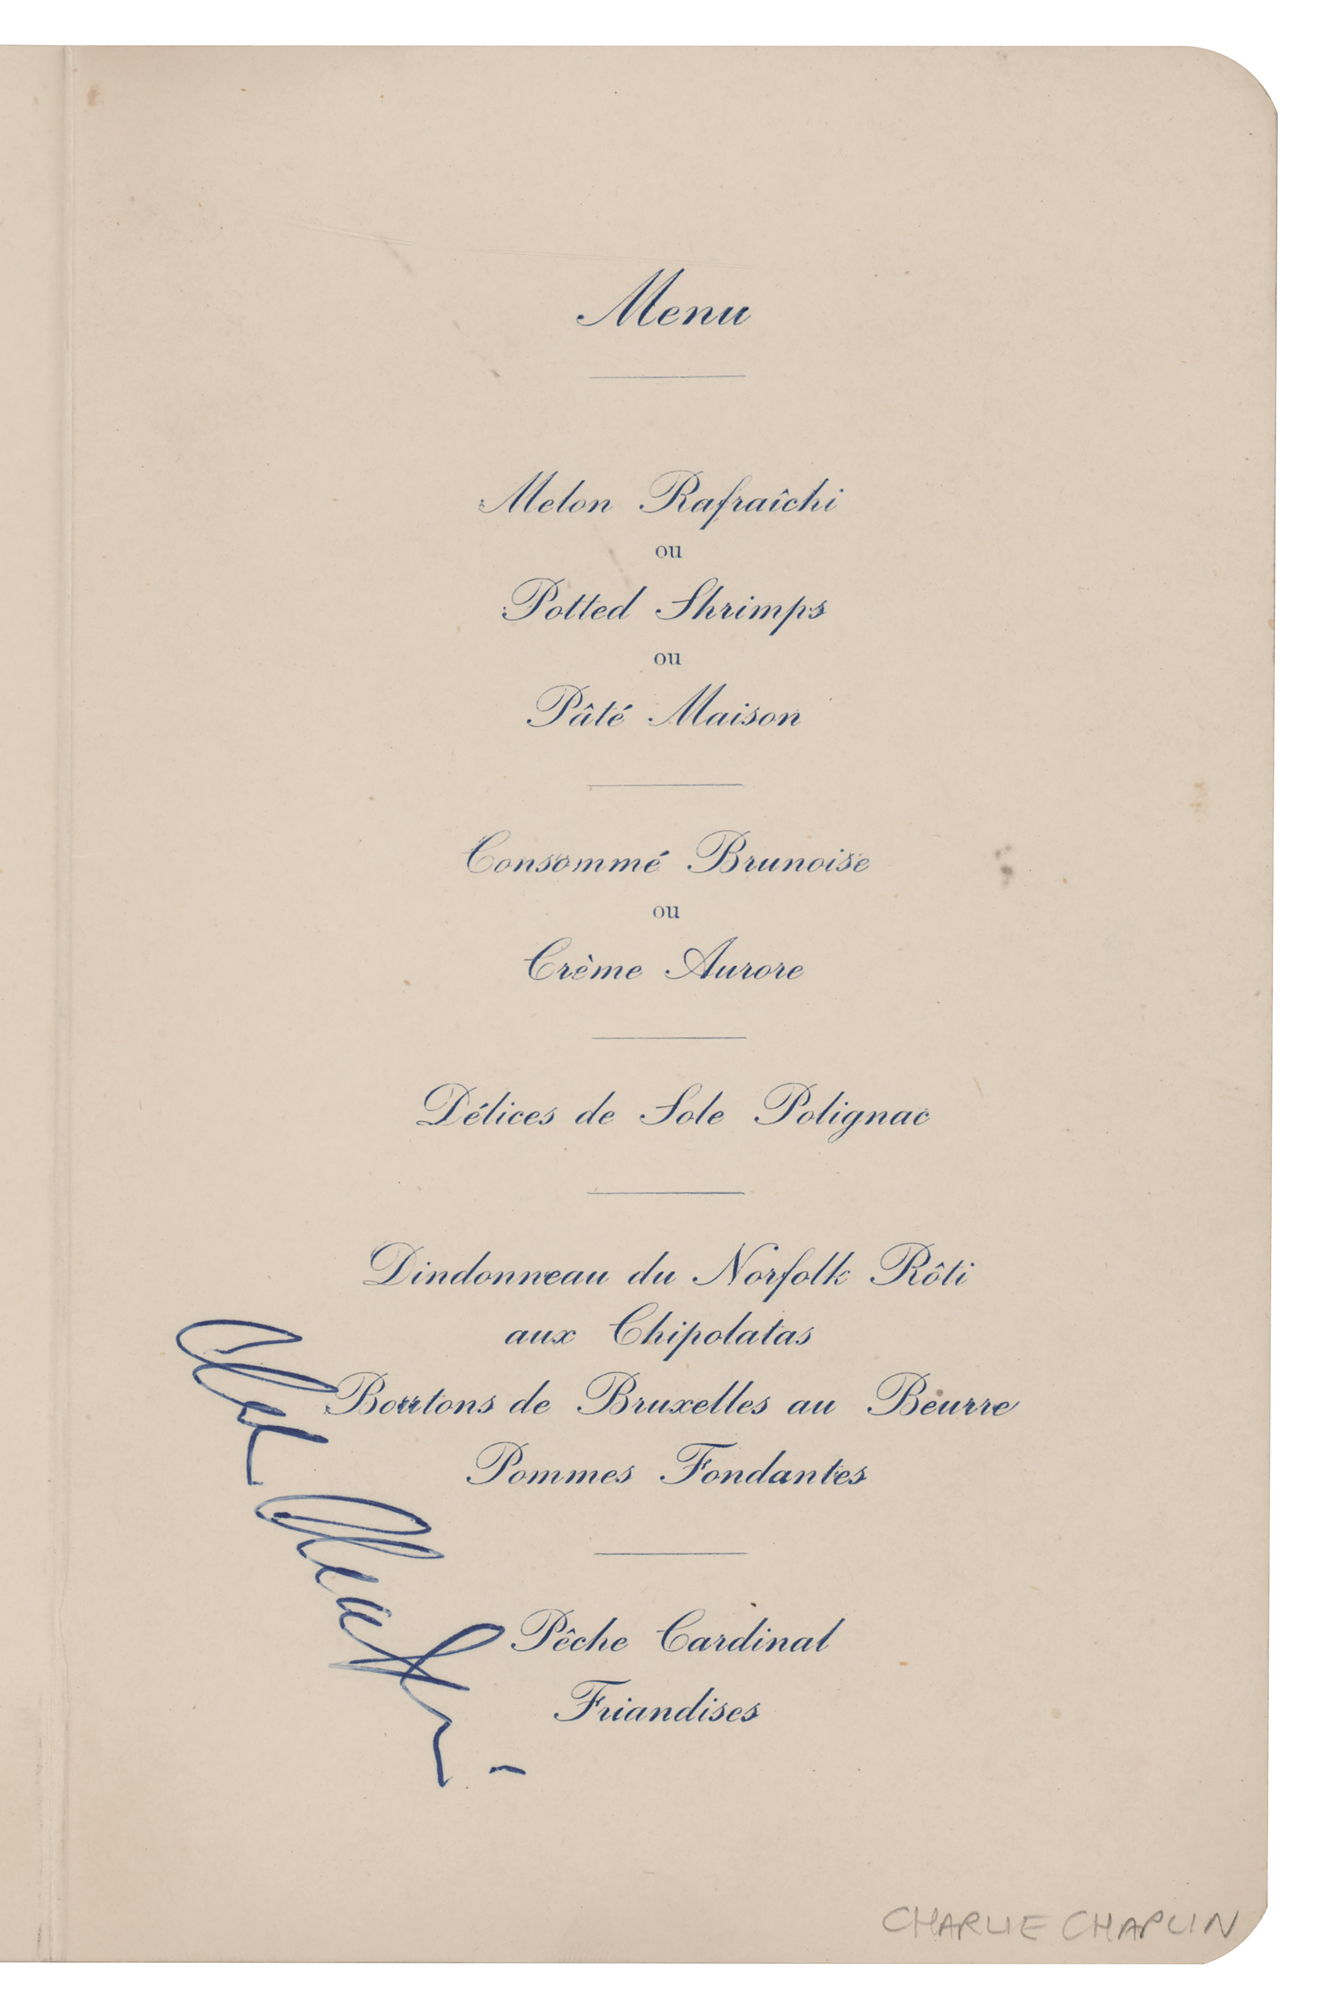 Menu
Melon Rafraîchi
ou
Potted Shrimps
ou
Pâté Maison
Consommé Brunoise
ou
Crème Aurore
Délices de Sole Polignac
Dindonneau du Norfolk Rôti
aux Chipolatas
Boutons de Bruxelles au Beurre
Pommes Fondantes
Pêche Cardinal
Friandises
CHARLIE CHAPLIN